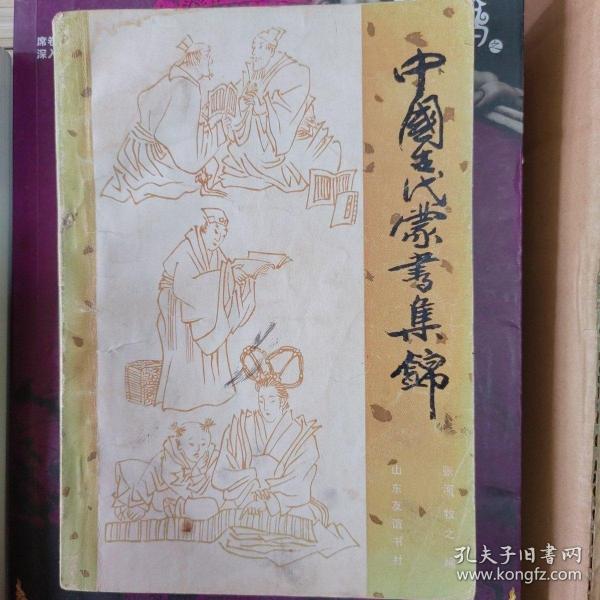 中國古代蒙書集錦
张河 牧之 编
山东友谊书社
席卷
深入
之
孔夫子旧书网
www.kongfz.com